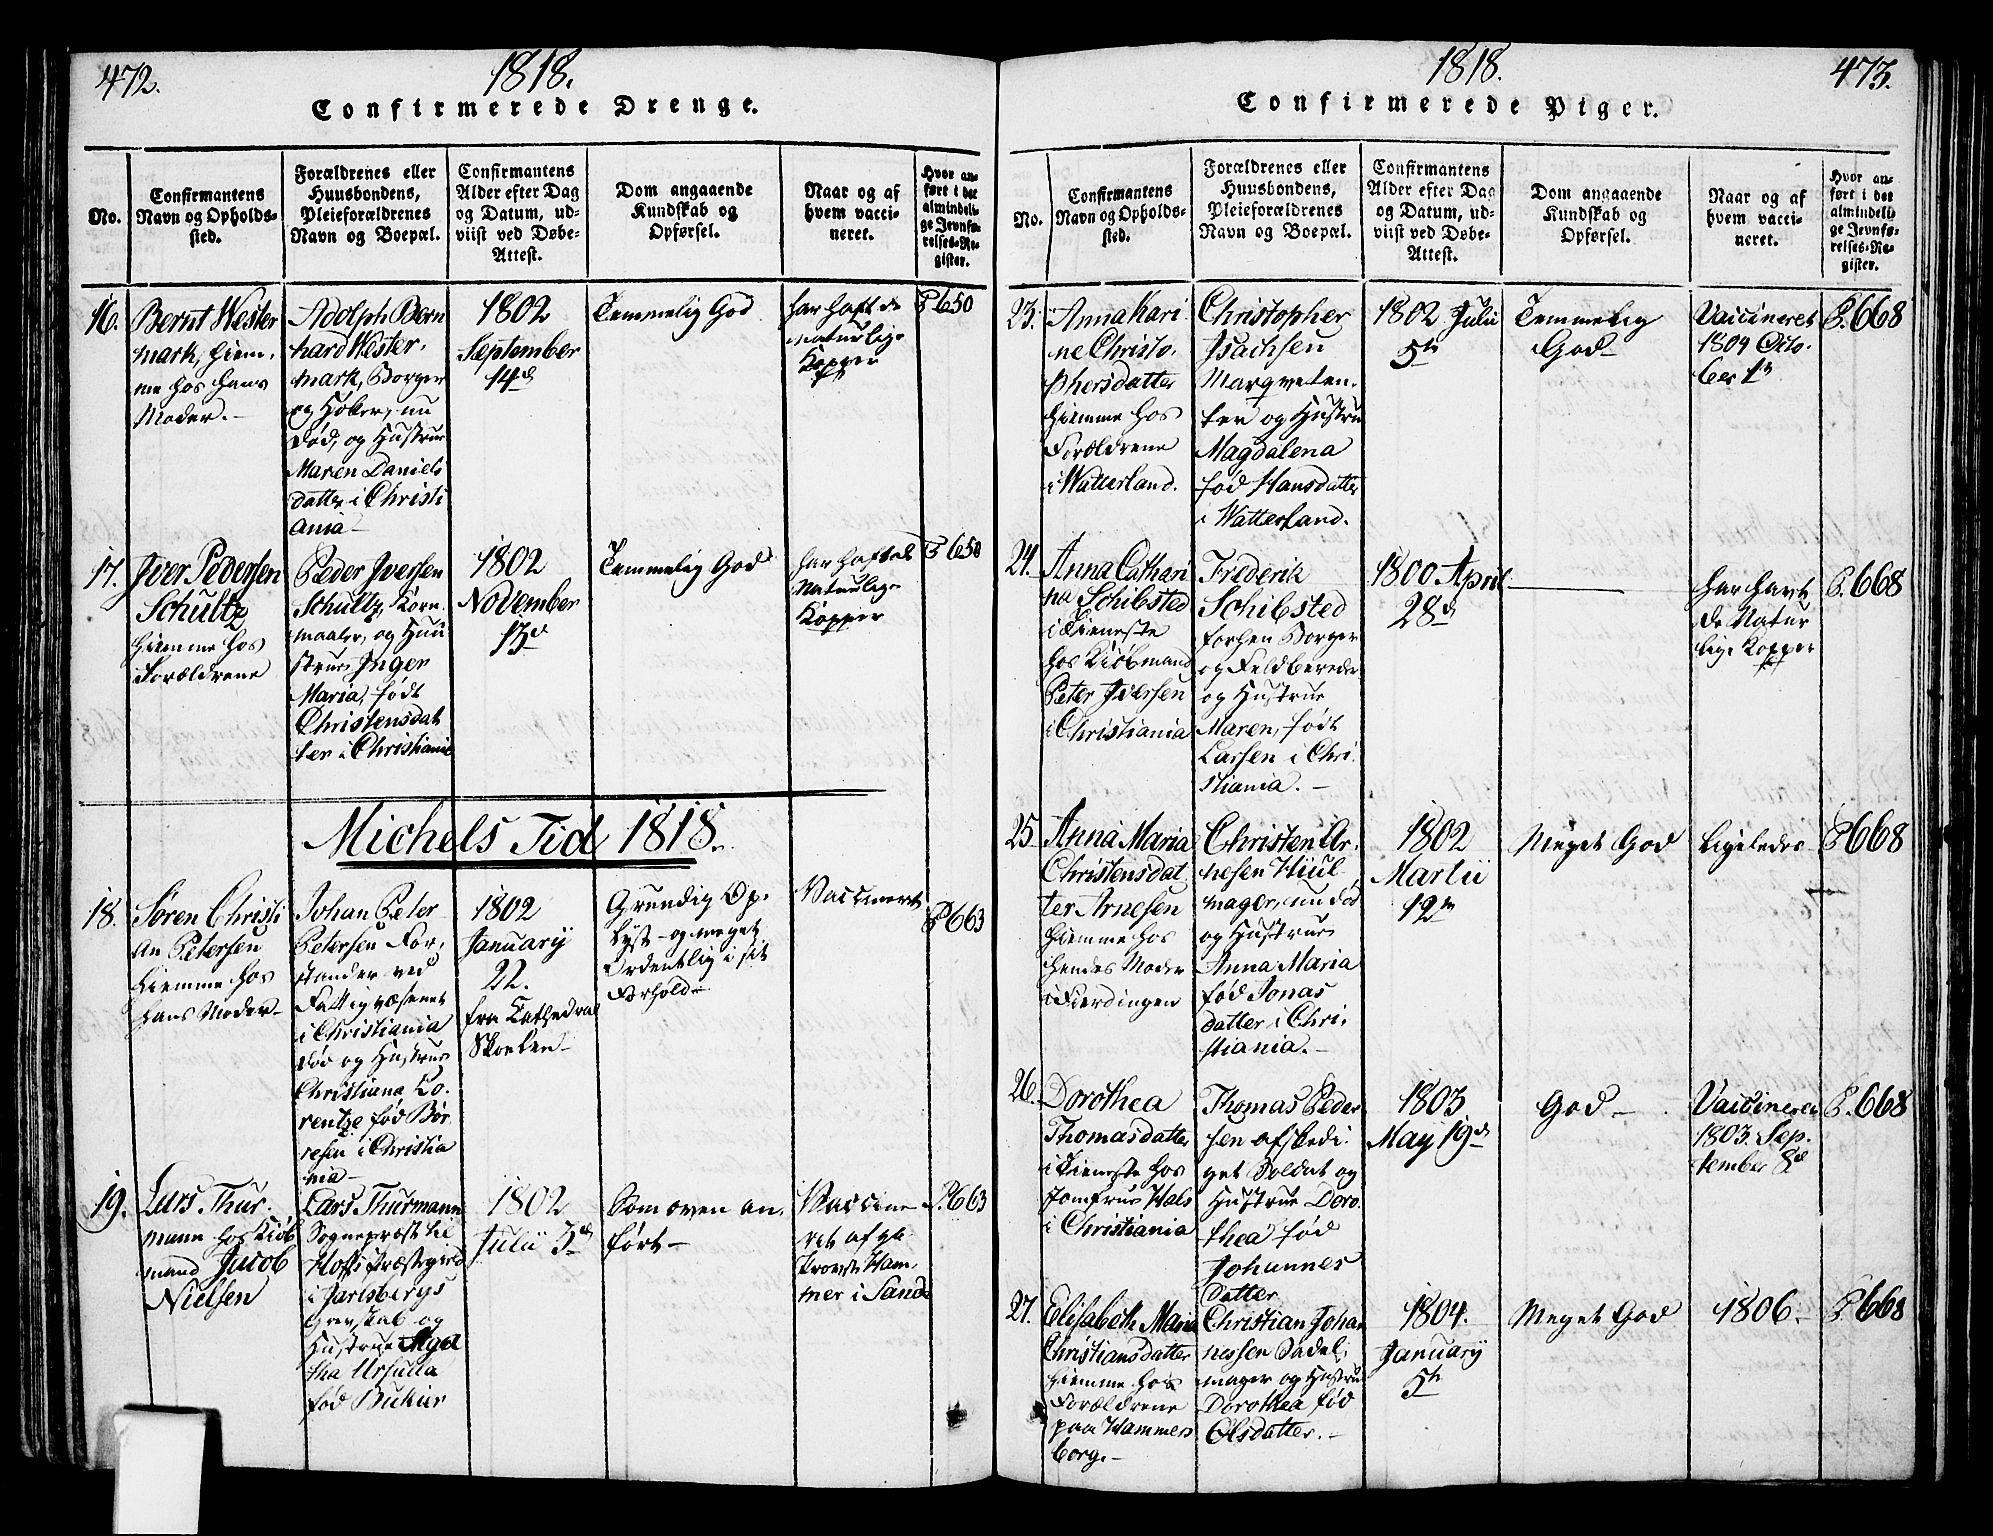 472.
1818.
Confirmerede Drenge.
No.
Confirmantens
Navn og Opholds-
sted.
Forældrenes eller
Huusbondens,
Pleieforældrenes
Navn og Boepæl.
Confirmantens
Alder efter Dag
og Datum, ud-
viist ved Døbe-
Attest.
Dom angaaende
Kundskab og
Opførsel.
Naar og af
hvem vacci-
neret.
Hvor an-
ført i det
almindeli-
ge Jevnfø-
relses-Re-
gister.
16.
Bernt Wester
mark, hiem-
me hos hans
Moder.-
Adolph Bern
hard Wester-
mark, Borger
og Høker, nu
død, og Hustrue
Maren Daniels
datter i Christi
ania-
1802
September
14d
Temmelig God
har haft de
naturlige
Kopper
P 650
17.
Iver Pedersen
Schultz
hiemme hos
Forældrene
Peder Iversen
Schultz, Korn-
maaler, og Huu
strue Inger
Maria, født
Christensdat
ter i Christiania
1802
November
13d
Temmelig God
har haft de
Naturlige
Kopper
P 650
Michels Tid 1818.
18.
Søren Christi
an Petersen
hiemme hos
hans Moder-
Johan Peter
Petersen For-
stander ved
Fattigvæsenet
i Christiania
død og Hustrue
Christiana Lo-
rentze fød Bør
resen i Christia
nia-
1802
January
22.
fra Cathedral
Skoelen-
Grundig Op-
lyst - og meget
Ordentlig i sit
Forhold-
Vaccinert
P 663
19.
Lars Thur-
mann hos Kiøb
mand Jacob
Nielsen
Lars Thurmann
Sognepræst til
Hoffs Præstegield
i Jarlsbergs
Grevskab og
Hustrue Aga
tha Ursulla
fød
1802
Julii 3d
Som oven an-
ført-
Vaccine
ret af
Provst Ham-
mer i Sande
P. 663
1818.
473.
Confirmerede Piger.
No.
Confirmantens
Navn og Opholds-
sted.
Forældrenes eller
Huusbondens,
Pleieforældrenes
Navn og Boepæl.
Confirmantens
Alder efter Dag
og Datum, ud-
viist ved Døbe-
Attest.
Dom angaaende
Kundskab og
Opførsel.
Naar og af
hvem vacci-
neret.
Hvor an-
ført i det
almindeli-
ge Jevnfø-
relses-Re-
gister.
23.
Anna Kari
ne Christo-
phersdatter
hiemme hos
Forældrene
i Watterland.
Christopher
Isachsen
Marqveten-
ter og Hustrue
Magdalena
fød Hansdatter
i Watterland.
1802 Julii
5te
Temmelig
God-
Vaccineret
1809 Octo-
ber 1ste
P. 668
24.
Anna Cathari
na Schibsted
i Tieneste
hos Kiöbmand
Peter Iversen
i Christiania
Frederik
Schibsted
forhen Borger
og Feldbereder
og Hustrue
Maren, født
Larsen i Chri
stiania.-
1800 April
28d
har havt
de Natur
lige Kopper
P. 668
25
Anna Maria
Christensdat
ter Arnesen
hiemme hos
hendes Moder
i Fierdingen
Christen Ar-
nesen Hiul
mager, nu død
og Hustrue
Anna Maria
fød Jonas
datter i Chri-
stiania.-
1802
Martii
12te
Meget God
Ligeledes-
P 668
26.
Dorothea
Thomasdatter
i Tieneste hos
Jomfrue Hals
i Christiania
Thomas Peder
sen afskedi-
get Soldat og
Hustrue Doro
thea fød
Johannes
datter
1803
May 19d
God-
Vaccineret
1803. Sep-
tember 8d
P. 668
27.
Elisabeth Maria
Christiansdatter
hiemme hos
Forældrene
paa Hammers
borg.-
Christian Johan
nessen Sadel-
mager og Hustrue
Dorothea fød
Olsdatter.-
1804.
January
5te
Meget God
1806.-
P 668